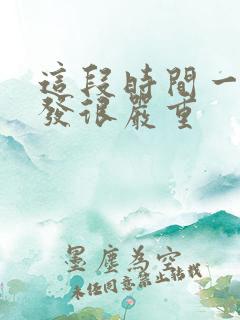 這段時間一
發很嚴重
墨塵為空
未经同意禁止转载